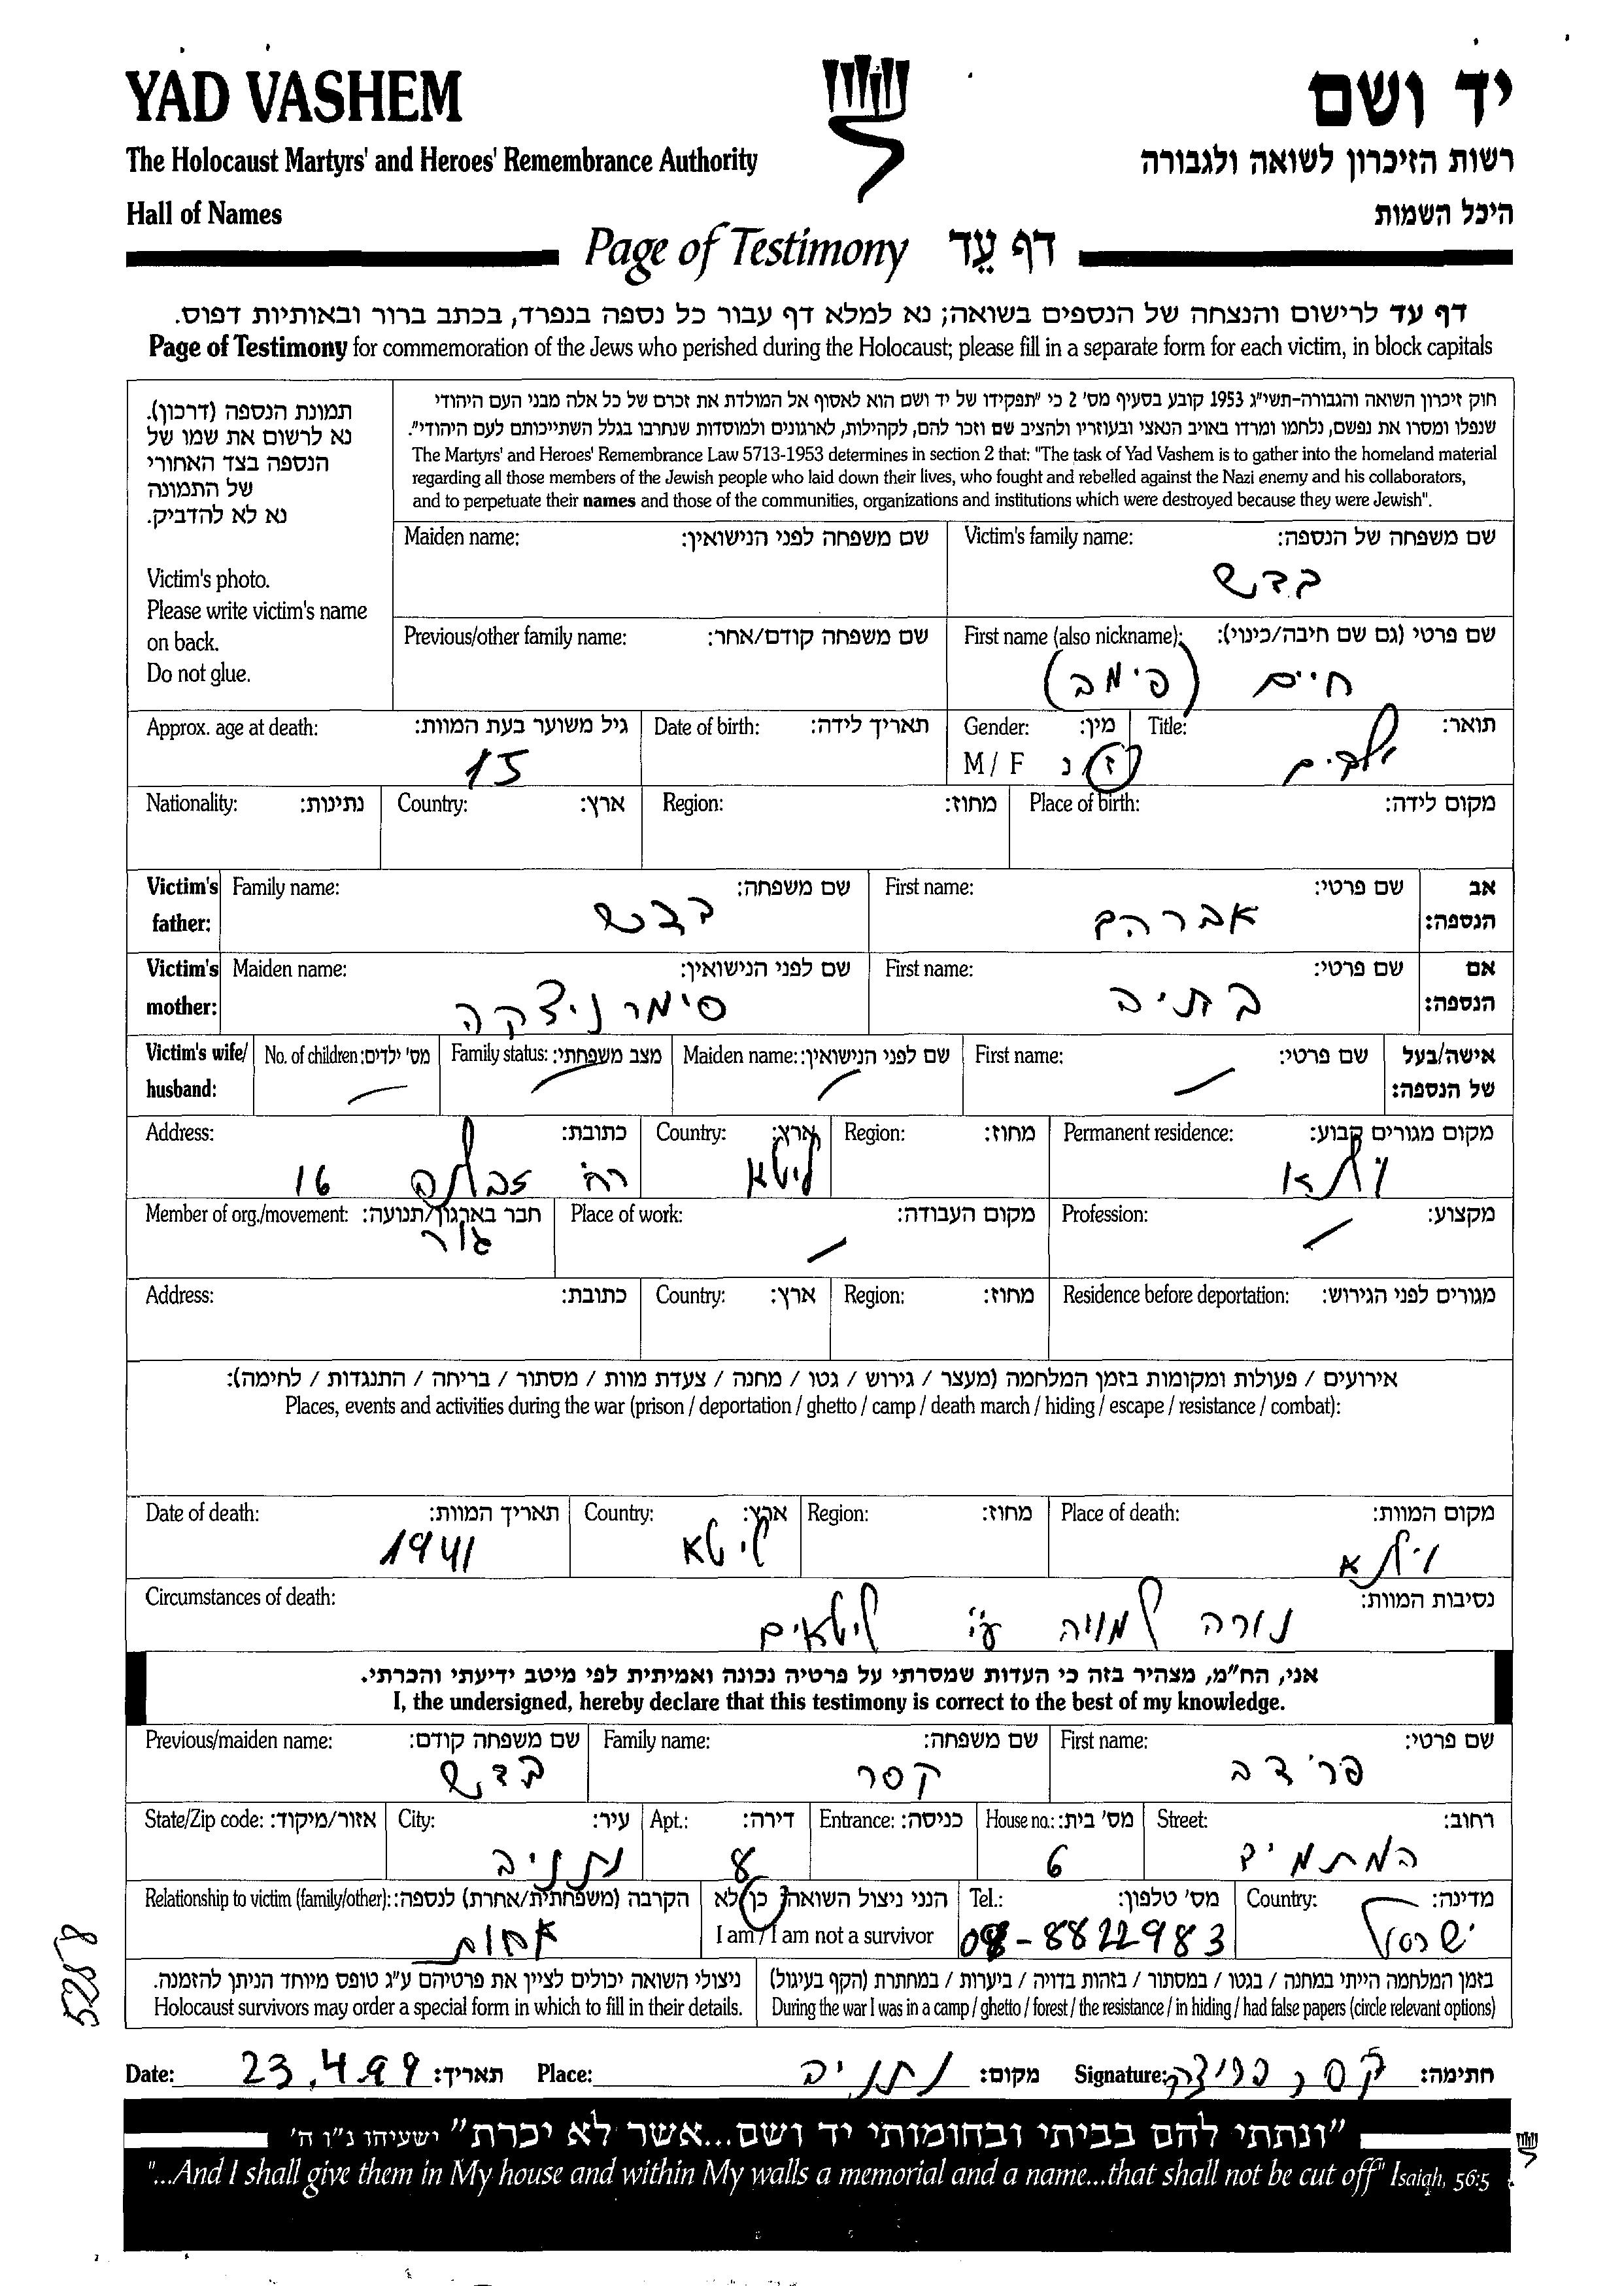 YAD VASHEM יד ושם
The Holocaust Martyrs' and Heroes' Remembrance Authority רשות הזיכרון לשואה ולגבורה
Hall of Names היכל השמות
Page of Testimony דף עֵד
דף עד לרישום והנצחה של הנספים בשואה; נא למלא דף עבור כל נספה בנפרד, בכתב ברור ובאותיות דפוס.
Page of Testimony for commemoration of the Jews who perished during the Holocaust; please fill in a separate form for each victim, in block capitals
תמונת הנספה (דרכון).
נא לרשום את שמו של
הנספה בצד האחורי
של התמונה
נא לא להדביק.
Victim's photo.
Please write victim's name
on back.
Do not glue.
חוק זיכרון השואה והגבורה-תשי"ג 1953 קובע בסעיף מס' 2 כי "תפקידו של יד ושם הוא לאסוף אל המולדת את זכרם של כל אלה מבני העם היהודי
שנפלו ומסרו את נפשם, נלחמו ומרדו באויב הנאצי ובעוזריו ולהציב שם וזכר להם, לקהילות, לארגונים ולמוסדות שנחרבו בגלל השתייכותם לעם היהודי".
The Martyrs' and Heroes' Remembrance Law 5713-1953 determines in section 2 that: "The task of Yad Vashem is to gather into the homeland material
regarding all those members of the Jewish people who laid down their lives, who fought and rebelled against the Nazi enemy and his collaborators,
and to perpetuate their names and those of the communities, organizations and institutions which were destroyed because they were Jewish".
Maiden name: שם משפחה לפני הנישואין: Victim's family name: שם משפחה של הנספה:
בדש
Previous/other family name: שם משפחה קודם/אחר: First name (also nickname): שם פרטי (גם שם חיבה/כינוי):
חיים (פימה)
Approx. age at death: גיל משוער בעת המוות: Date of birth: תאריך לידה: Gender: מין: Title: תואר:
15 M / F ז / נ
Nationality: נתינות: Country: ארץ: Region: מחוז: Place of birth: מקום לידה:
Victim's father: Family name: שם משפחה: First name: שם פרטי: אב הנספה:
בדש אברהם
Victim's mother: Maiden name: שם לפני הנישואין: First name: שם פרטי: אם הנספה:
סימרניצקה בתיה
Victim's wife/ husband: No. of children: מס' ילדים: Family status: מצב משפחתי: Maiden name: שם לפני הנישואין: First name: שם פרטי: אישה/בעל של הנספה:
Address: כתובת: Country: ארץ: Region: מחוז: Permanent residence: מקום מגורים קבוע:
רח' 16 ליטא וילנא
Member of org./movement: חבר בארגון/תנועה: Place of work: מקום העבודה: Profession: מקצוע:
Address: כתובת: Country: ארץ: Region: מחוז: Residence before deportation: מגורים לפני הגירוש:
אירועים / פעולות ומקומות בזמן המלחמה (מעצר / גירוש / גטו / מחנה / צעדת מוות / מסתור / בריחה / התנגדות / לחימה):
Places, events and activities during the war (prison / deportation / ghetto / camp / death march / hiding / escape / resistance / combat):
Date of death: תאריך המוות: Country: ארץ: Region: מחוז: Place of death: מקום המוות:
1941 ליטא וילנא
Circumstances of death: נסיבות המוות:
נורה למוות ע"י ליטאים
אני, הח"מ, מצהיר בזה כי העדות שמסרתי על פרטיה נכונה ואמיתית לפי מיטב ידיעתי והכרתי.
I, the undersigned, hereby declare that this testimony is correct to the best of my knowledge.
Previous/maiden name: שם משפחה קודם: Family name: שם משפחה: First name: שם פרטי:
בדש קסר פרידה
State/Zip code: אזור/מיקוד: City: עיר: Apt.: דירה: Entrance: כניסה: House no.: מס' בית: Street: רחוב:
נתניה 8 6 המתמיד
Relationship to victim (family/other): הקרבה (משפחתית/אחרת) לנספה: הנני ניצול השואה: כן / לא Tel.: מס' טלפון: Country: מדינה:
אחות I am / I am not a survivor 09-8822983 ישראל
ניצולי השואה יכולים לציין את פרטיהם ע"ג טופס מיוחד הניתן להזמנה.
Holocaust survivors may order a special form in which to fill in their details.
בזמן המלחמה הייתי במחנה / בגטו / במסתור / בזהות בדויה / ביערות / במחתרת (הקף בעיגול)
During the war I was in a camp / ghetto / forest / the resistance / in hiding / had false papers (circle relevant options)
Date: 23.4.99 תאריך: Place: נתניה מקום: Signature: קסר פרידה חתימה:
"ונתתי להם בביתי ובחומותי יד ושם...אשר לא יכרת" ישעיהו נ"ו ה'
"...And I shall give them in My house and within My walls a memorial and a name...that shall not be cut off" Isaiah, 56:5